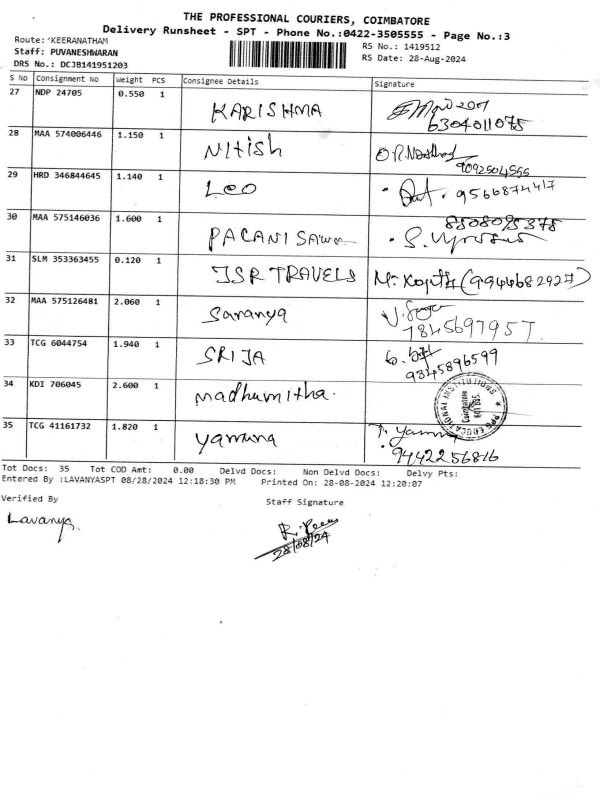 THE PROFESSIONAL COURIERS, COIMBATORE
Delivery Runsheet - SPT - Phone No.:0422-3505555 - Page No.:3
Route: KEERANATHAM
RS No.: 1419512
Staff: PUVANESHWARAN
RS Date: 28-Aug-2024
DRS No.: DCJB141951203
S No Consignment No Weight PCS Consignee Details Signature
27 NDP 24705 0.550 1 KARISHMA
6304011075
28 MAA 574006446 1.150 1 Nitish
9092504555
29 HRD 346844645 1.140 1 LEO 9566874417
30 MAA 575146036 1.600 1 PACANISAWA 8508095375
31 SLM 353363455 0.120 1 JSR TRAVELS (9944682927)
32 MAA 575126481 2.060 1 Saranya
7845697957
33 TCG 6044754 1.940 1 SRIJA
9345896599
34 KDI 706045 2.600 1 madhumitha. PPG EDUCATIONAL INSTITUTIONS Coimbatore 641 035.
35 TCG 41161732 1.820 1 yamuna
9442256816
Tot Docs: 35 Tot COD Amt: 0.00 Delvd Docs: Non Delvd Docs: Delvy Pts:
Entered By :LAVANYASPT 08/28/2024 12:18:30 PM Printed On: 28-08-2024 12:20:07
Verified By Staff Signature
Lavanya.
28/08/24